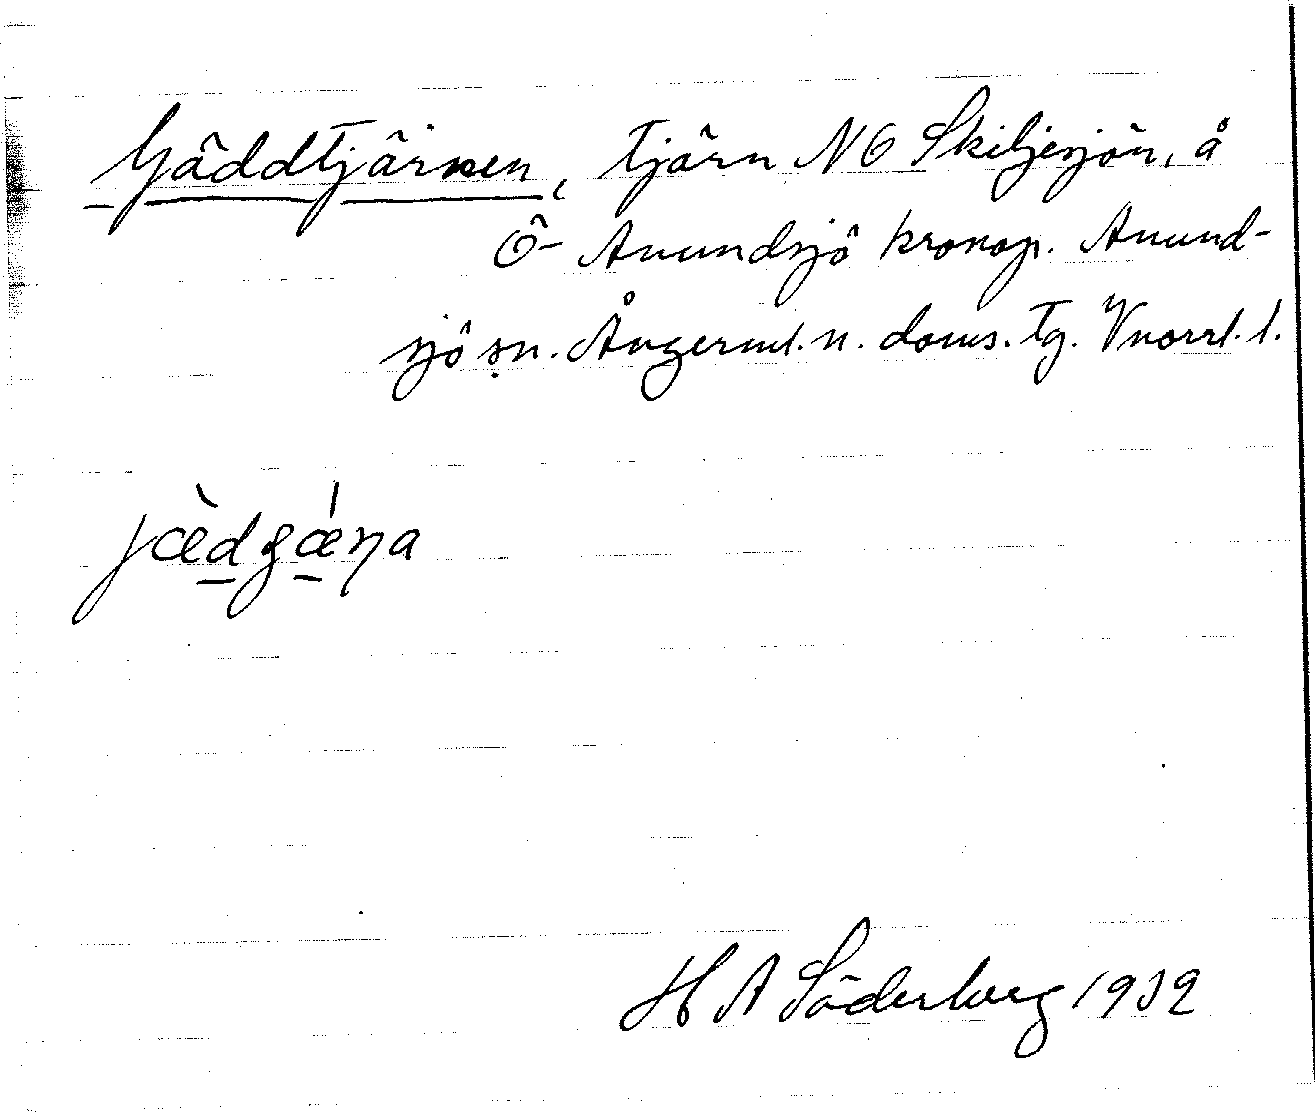 Gäddtjärnen, tjärn NO Skiljesjön, å
Ö- Anundsjö kronop. Anund-
sjö sn. Ångerml. n. doms. tg. Vnorrl. l.
jæ̀dgǽŋa
H A Söderberg 1932